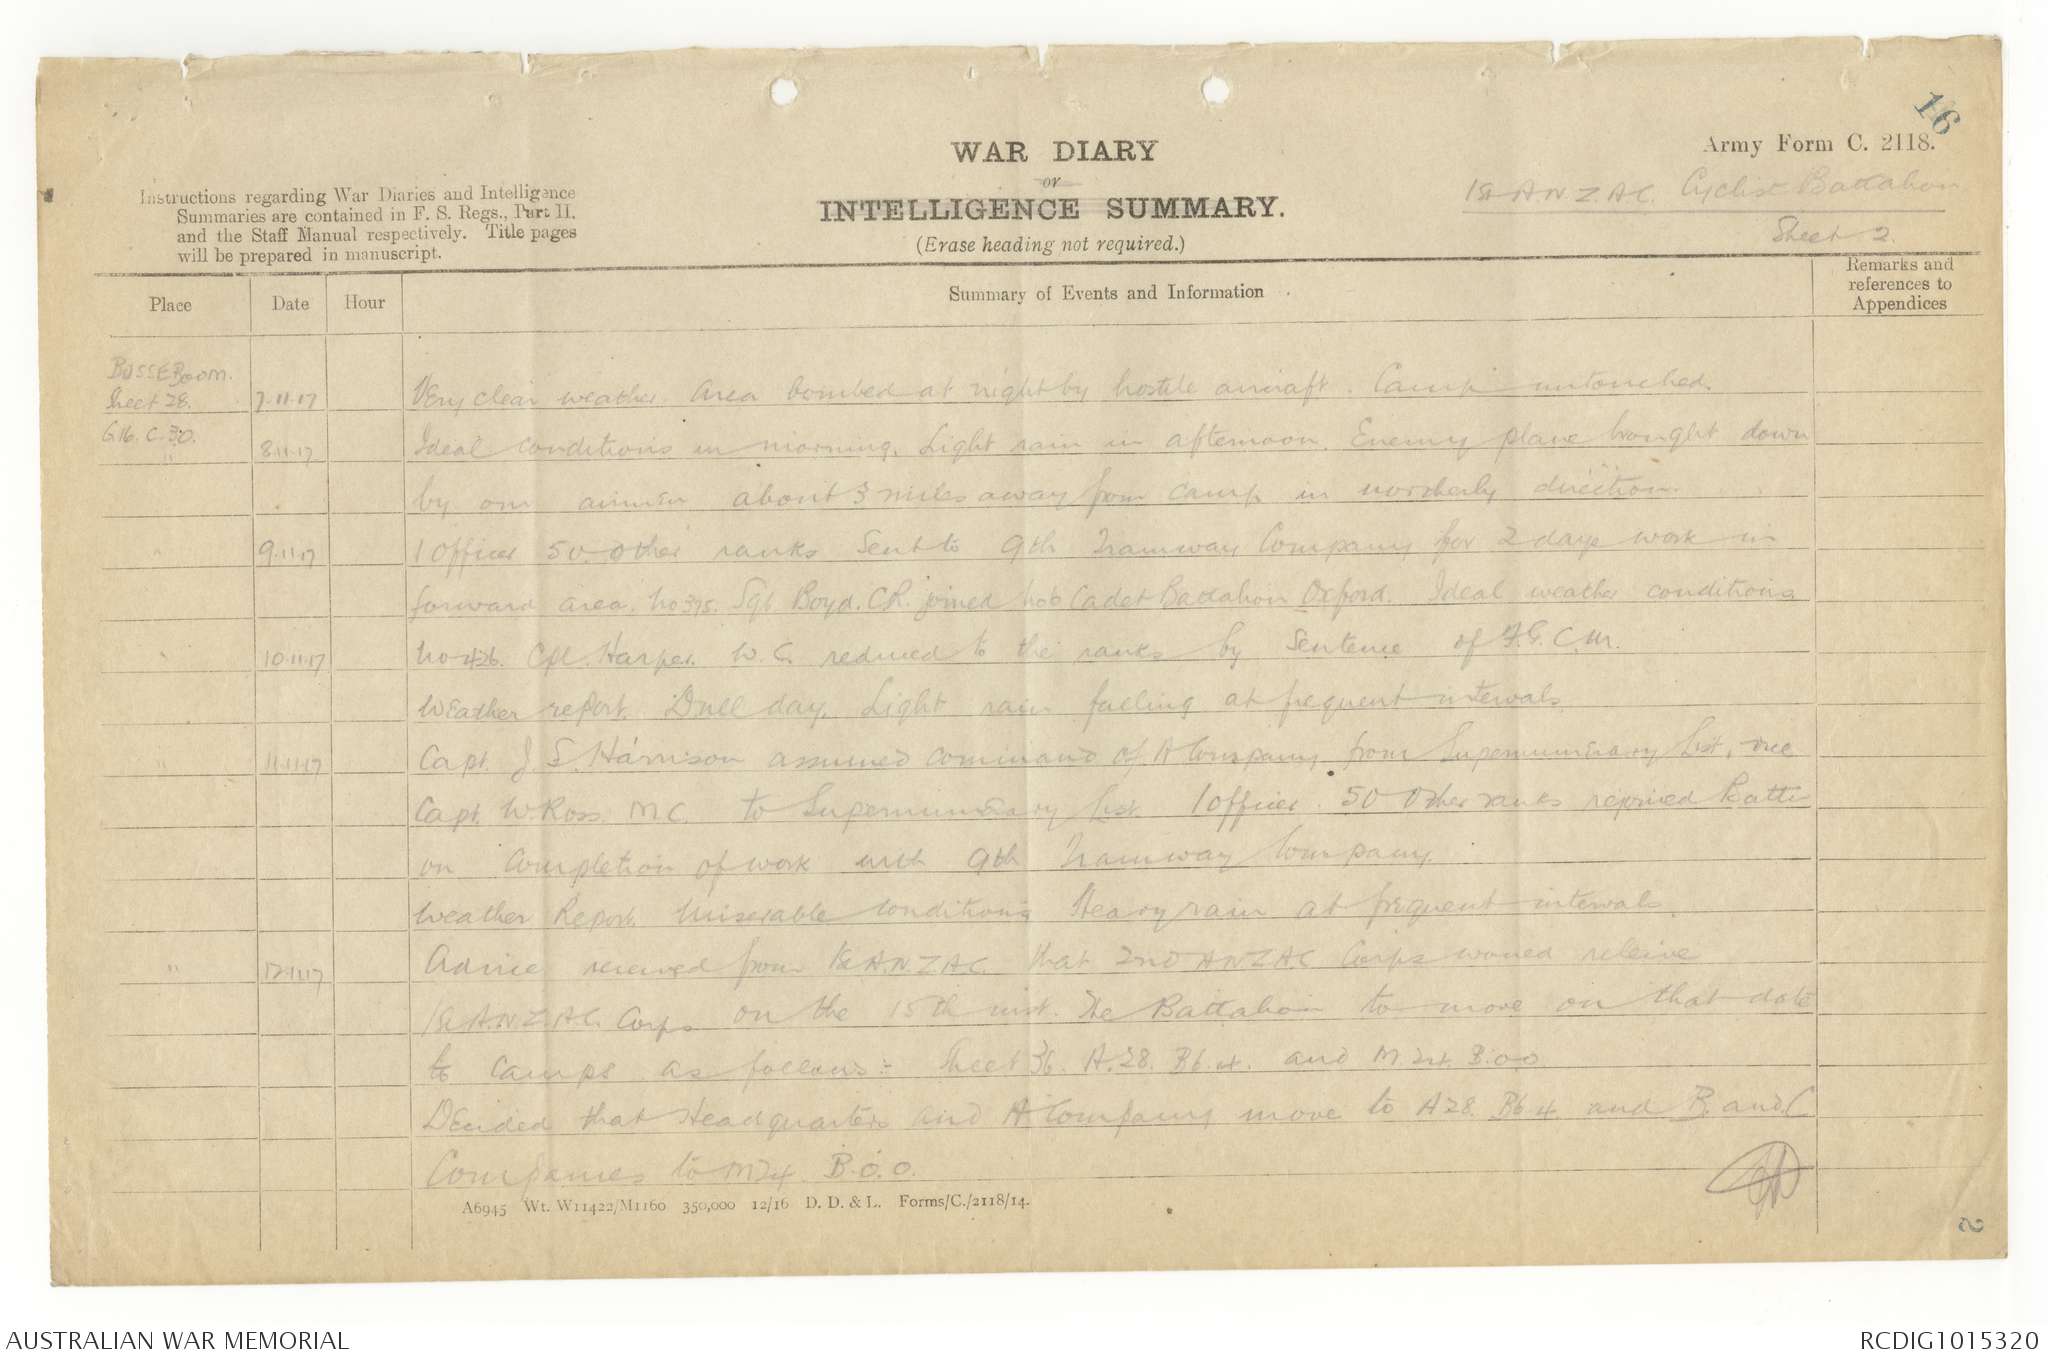 16
Army Form C. 2118.
WAR DIARY
or
INTELLIGENCE SUMMARY.
(Erase heading not required.)
Instructions regarding War Diaries and Intelligence
Summaries are contained in F. S. Regs., Part II.
and the Staff Manual respectively. Title pages
will be prepared in manuscript.
1st A.N.Z.A.C. Cyclist Battalion
Sheet 2.
Place
Date
Hour
Summary of Events and Information
Remarks and
references to
Appendices
BUSSEBOOM.
Sheet 28. 7.11.17 Very clear weather. Area bombed at night by hostile aircraft. Camp untouched.
G.16. C.30.
" 8.11.17 Ideal conditions in morning. Light rain in afternoon. Enemy plane brought down
by our airmen about 3 miles away from camp in northerly direction.
" 9.11.17 1 Officer 50 Other ranks sent to 9th Tramway Company for 2 days work in
forward area. No 395. Sgt Boyd. C.R. joined No 6 Cadet Battalion Oxford. Ideal weather conditions
10.11.17 No 426. Cpl. Harper. W.C. reduced to the ranks by sentence of F.G.C.M.
Weather report. Dull day. Light rain falling at frequent intervals.
" 11.11.17 Capt. J. S. Harrison assumed command of A Company from Supernumerary List, vice
Capt. W. Ross. M.C. to Supernumerary list. 1 Officer. 50 Other ranks rejoined Battn
on completion of work with 9th Tramway Company.
Weather Report. Miserable conditions Heavy rain at frequent intervals.
" 12.11.17 Advice received from 1st A.N.Z.A.C. that 2nd A.N.Z.A.C Corps would relieve
1st A.N.Z.A.C. Corps on the 15th inst. The Battalion to move on that date
to camps as follows:- Sheet 36. A.28. B6.4. and M 24. B.0.0.
Decided that Headquarters and A Company move to A28. B6.4 and B. and C
Companies to M24. B.0.0.
A6945 Wt. W11422/M1160 350,000 12/16 D. D. & L. Forms/C./2118/14.
2
AUSTRALIAN WAR MEMORIAL
RCDIG1015320